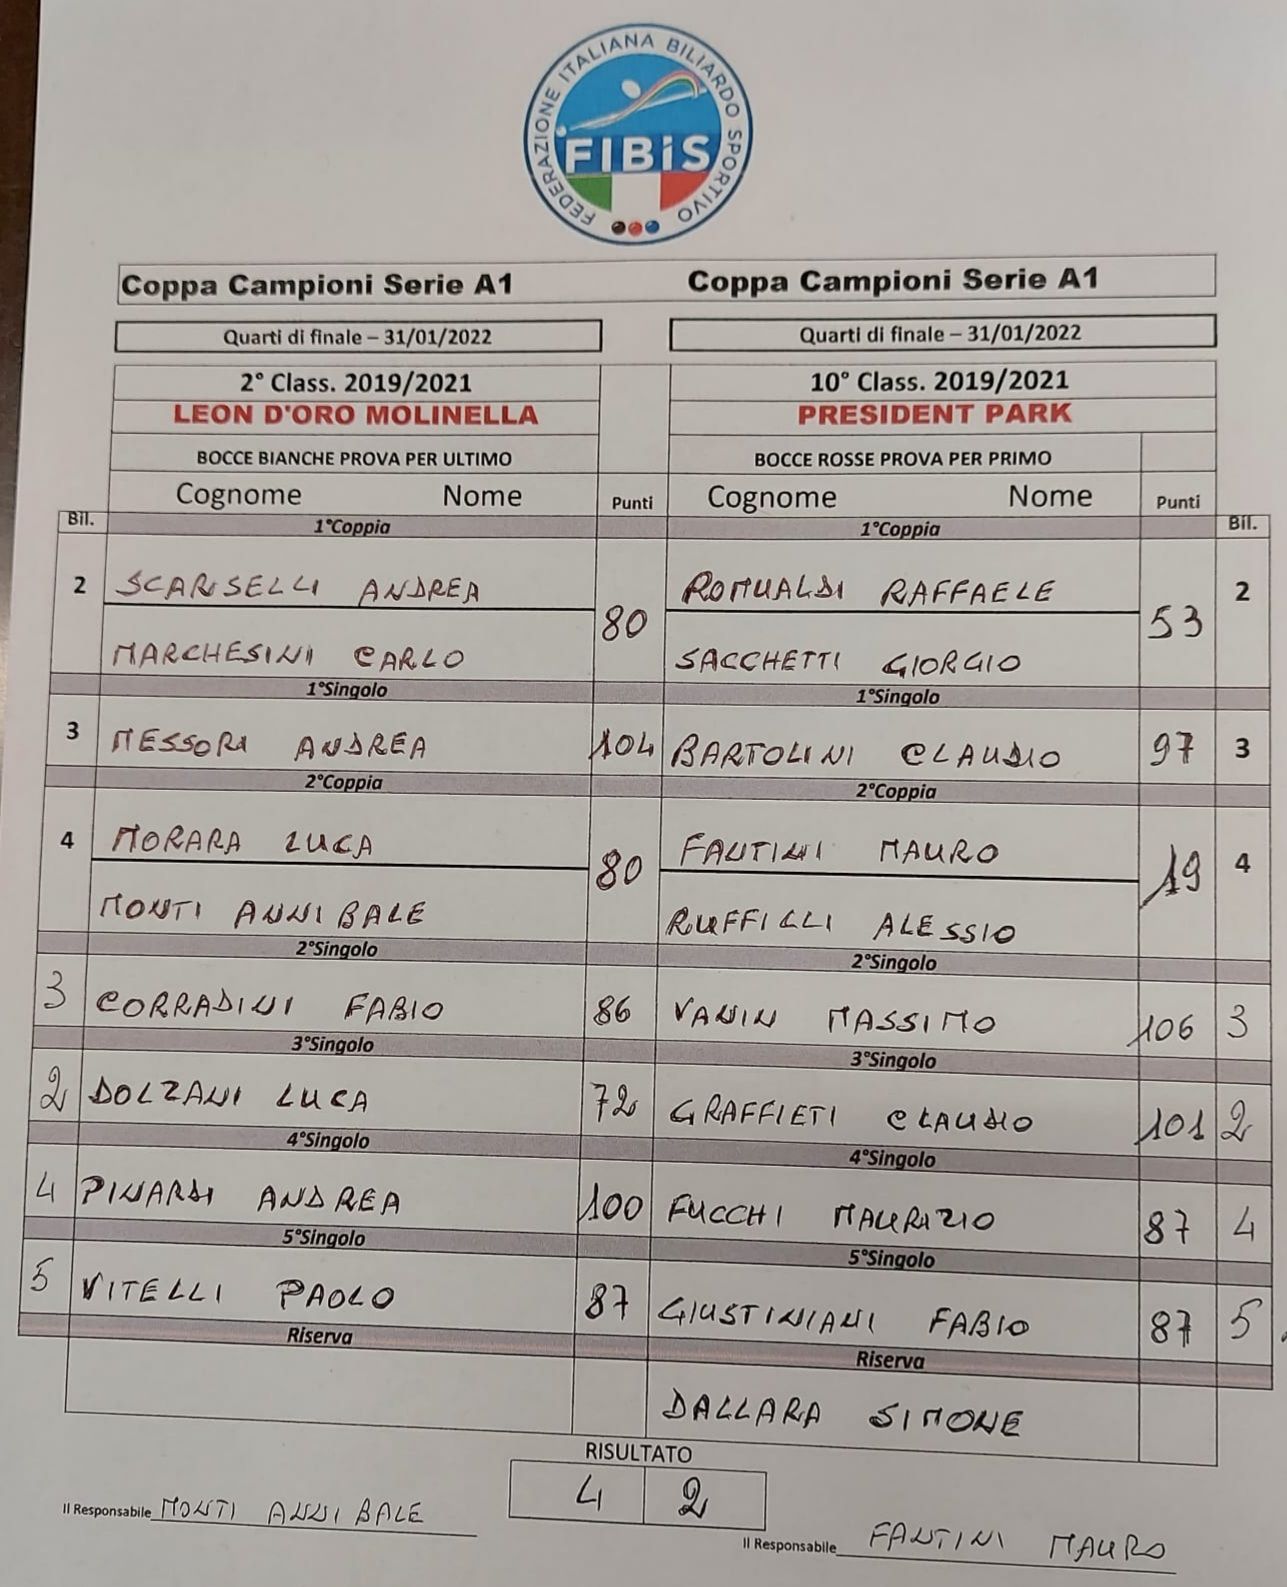 FEDERAZIONE ITALIANA BILIARDO SPORTIVO
FIBiS
Coppa Campioni Serie A1 Coppa Campioni Serie A1
Quarti di finale – 31/01/2022 Quarti di finale – 31/01/2022
2° Class. 2019/2021 10° Class. 2019/2021
LEON D'ORO MOLINELLA PRESIDENT PARK
BOCCE BIANCHE PROVA PER ULTIMO BOCCE ROSSE PROVA PER PRIMO
Cognome Nome Punti Cognome Nome Punti
Bil. 1°Coppia 1°Coppia Bil.
2 SCARISELLI ANDREA 80 ROMUALDI RAFFAELE 53 2
MARCHESINI CARLO SACCHETTI GIORGIO
1°Singolo 1°Singolo
3 MESSORI ANDREA 104 BARTOLINI CLAUDIO 97 3
2°Coppia 2°Coppia
4 MORARA LUCA 80 FANTINI MAURO 19 4
MONTI ANNIBALE RUFFILLI ALESSIO
2°Singolo 2°Singolo
3 CORRADINI FABIO 86 VANIN MASSIMO 106 3
3°Singolo 3°Singolo
2 DOLZANI LUCA 72 GRAFFIETI CLAUDIO 101 2
4°Singolo 4°Singolo
4 PINARDI ANDREA 100 FUCCHI MAURIZIO 87 4
5°Singolo 5°Singolo
5 VITELLI PAOLO 87 GIUSTINIANI FABIO 87 5
Riserva Riserva
DALLARA SIMONE
RISULTATO
4 2
Il Responsabile MONTI ANNIBALE
Il Responsabile FANTINI MAURO